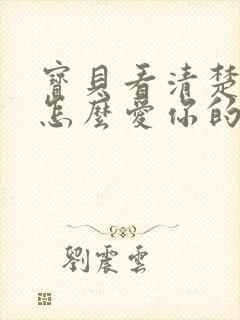 寶貝看清楚
怎麼愛你的
劉震雲